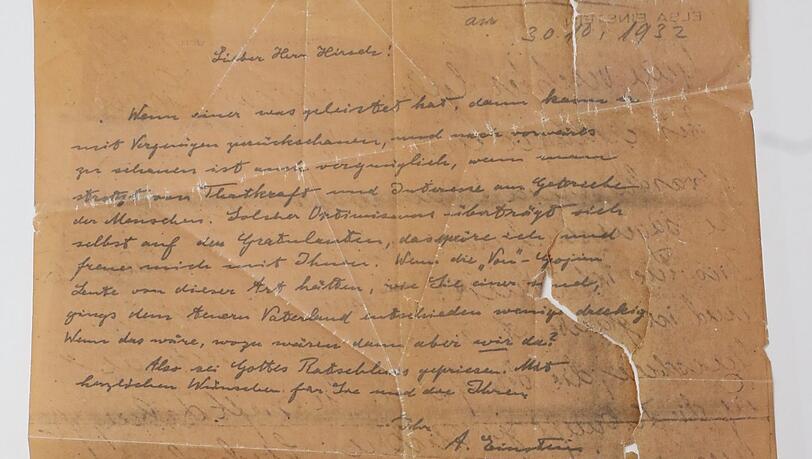 ELSA EINSTEIN
am
30.10.1932
Lieber Herr Hirsch!
Wenn einer was geleistet hat, dann kann er
mit Vergnügen zurückschauen, und nur vorwärts
zu schauen ist auch vergnüglich, wenn man
strotzt von Thatkraft und Interesse am Getriebe
der Menschen. Solcher Optimismus überträgt sich
selbst auf den Gratulanten, das spüre ich und
freue mich mit Ihnen. Wenn die „Von"-Gojim
Leute von dieser Art hätten, wie Sie einer sind,
gings dem teuern Vaterland entschieden weniger dreckig
Wenn das wäre, wozu wären dann aber wir da?
Also sei Gottes Ratschluss gepriesen. Mit
herzlichen Wünschen für Sie und die Ihren
Ihr
A. Einstein.